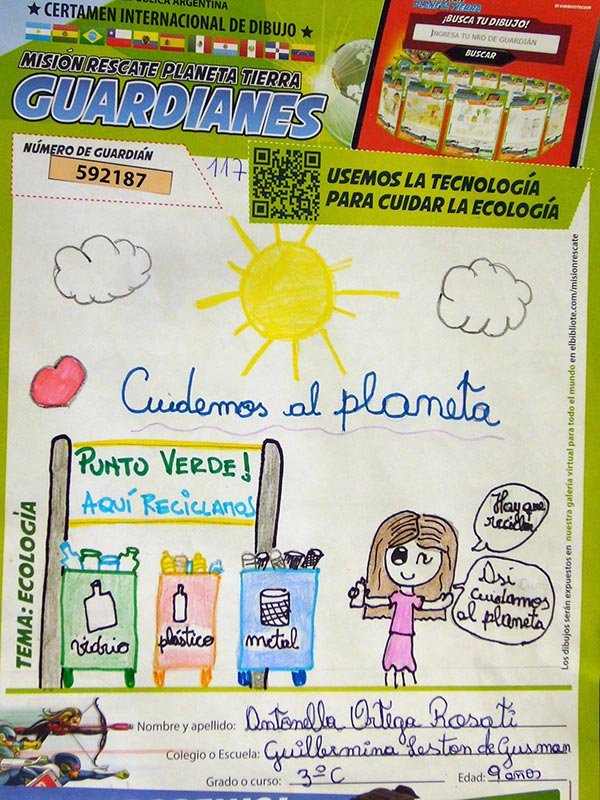 PÚBLICA ARGENTINA
★ CERTAMEN INTERNACIONAL DE DIBUJO ★
MISIÓN RESCATE PLANETA TIERRA
GUARDIANES
PLANETA TIERRA
¡BUSCA TU DIBUJO!
INGRESA TU NRO DE GUARDIÁN
BUSCAR
NÚMERO DE GUARDIÁN
592187
117
USEMOS LA TECNOLOGÍA
PARA CUIDAR LA ECOLOGÍA
Cuidemos al planeta
PUNTO VERDE!
AQUÍ RECICLAMOS
vidrio
plástico
metal
Hay que
reciclar
Asi
cuidamos
al planeta
TEMA: ECOLOGÍA
Los dibujos serán expuestos en nuestra galería virtual para todo el mundo en elbibliote.com/misionrescate
Nombre y apellido: Antonella Ortega Rosati
Colegio o Escuela: Guillermina Leston de Gusman
Grado o curso: 3ºC Edad: 9 años